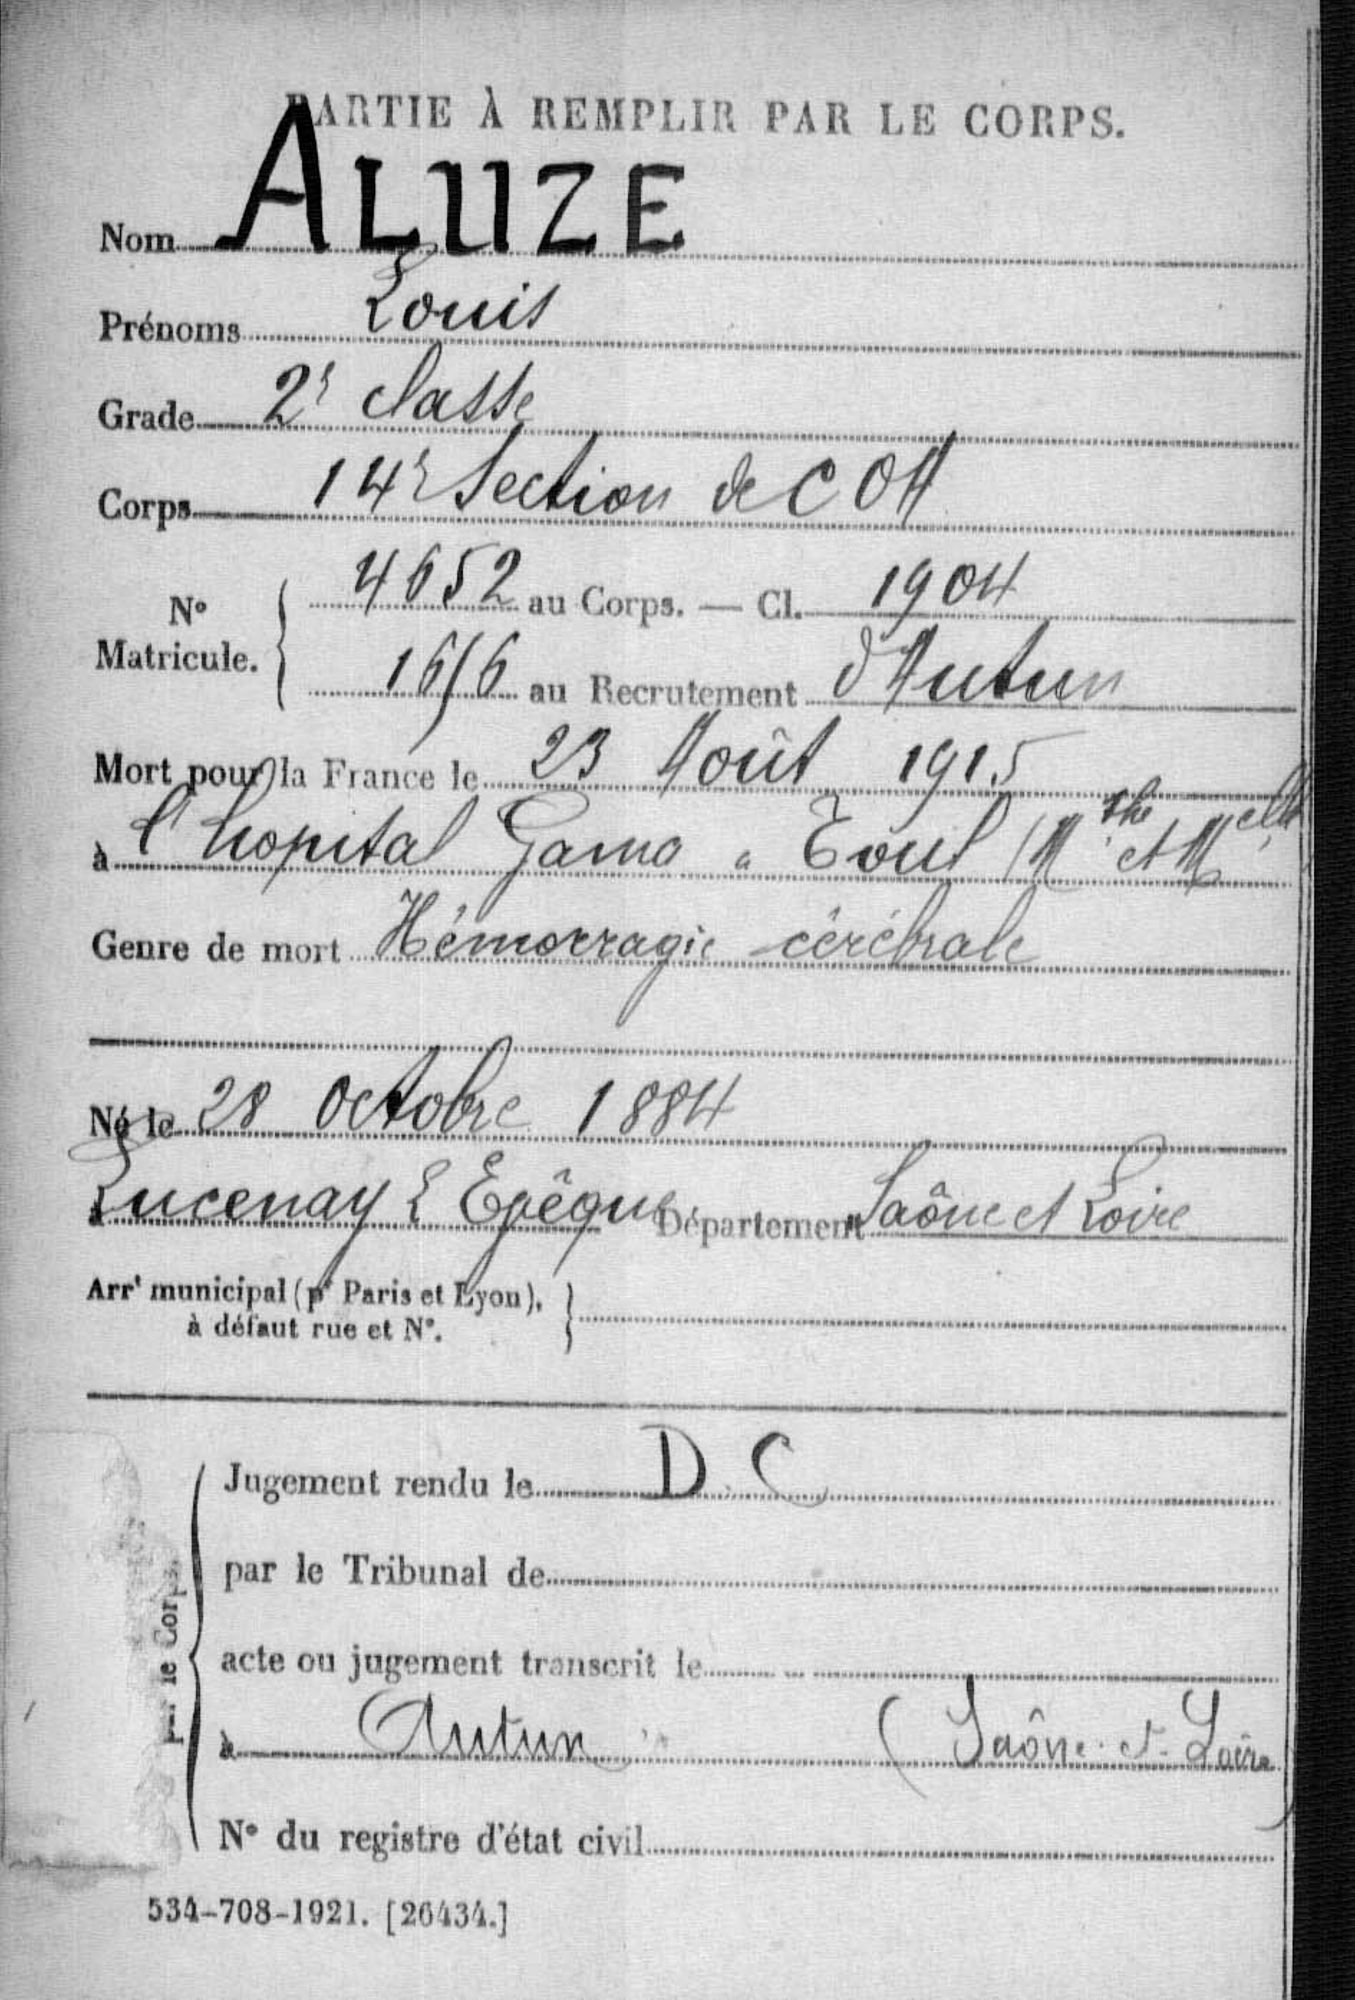 PARTIE À REMPLIR PAR LE CORPS.
Nom ALUZE
Prénoms Louis
Grade 2e classe
Corps 14e Section de C O M
N° Matricule. 4652 au Corps. — Cl. 1904
1616 au Recrutement d'Autun
Mort pour la France le 23 Août 1915
à l'hopital Gama à Toul (Mthe et Melle
Genre de mort Hémorragie cérébrale
Né le 28 Octobre 1884
à Lucenay L'Evêque Département Saône et Loire
Arrt municipal (pr Paris et Lyon),
à défaut rue et N°.
Jugement rendu le D. C
par le Tribunal de
acte ou jugement transcrit le
à Autun (Saône-et-Loire)
N° du registre d'état civil
le Corps.
534-708-1921. [26434.]